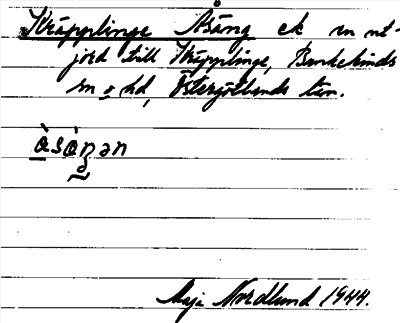 Skräpplinge Åsäng ek en ut-
jord till Skräpplinge, Bankekinds
sn o hd, Östergötlands län.
Maja Nordlund 1944.